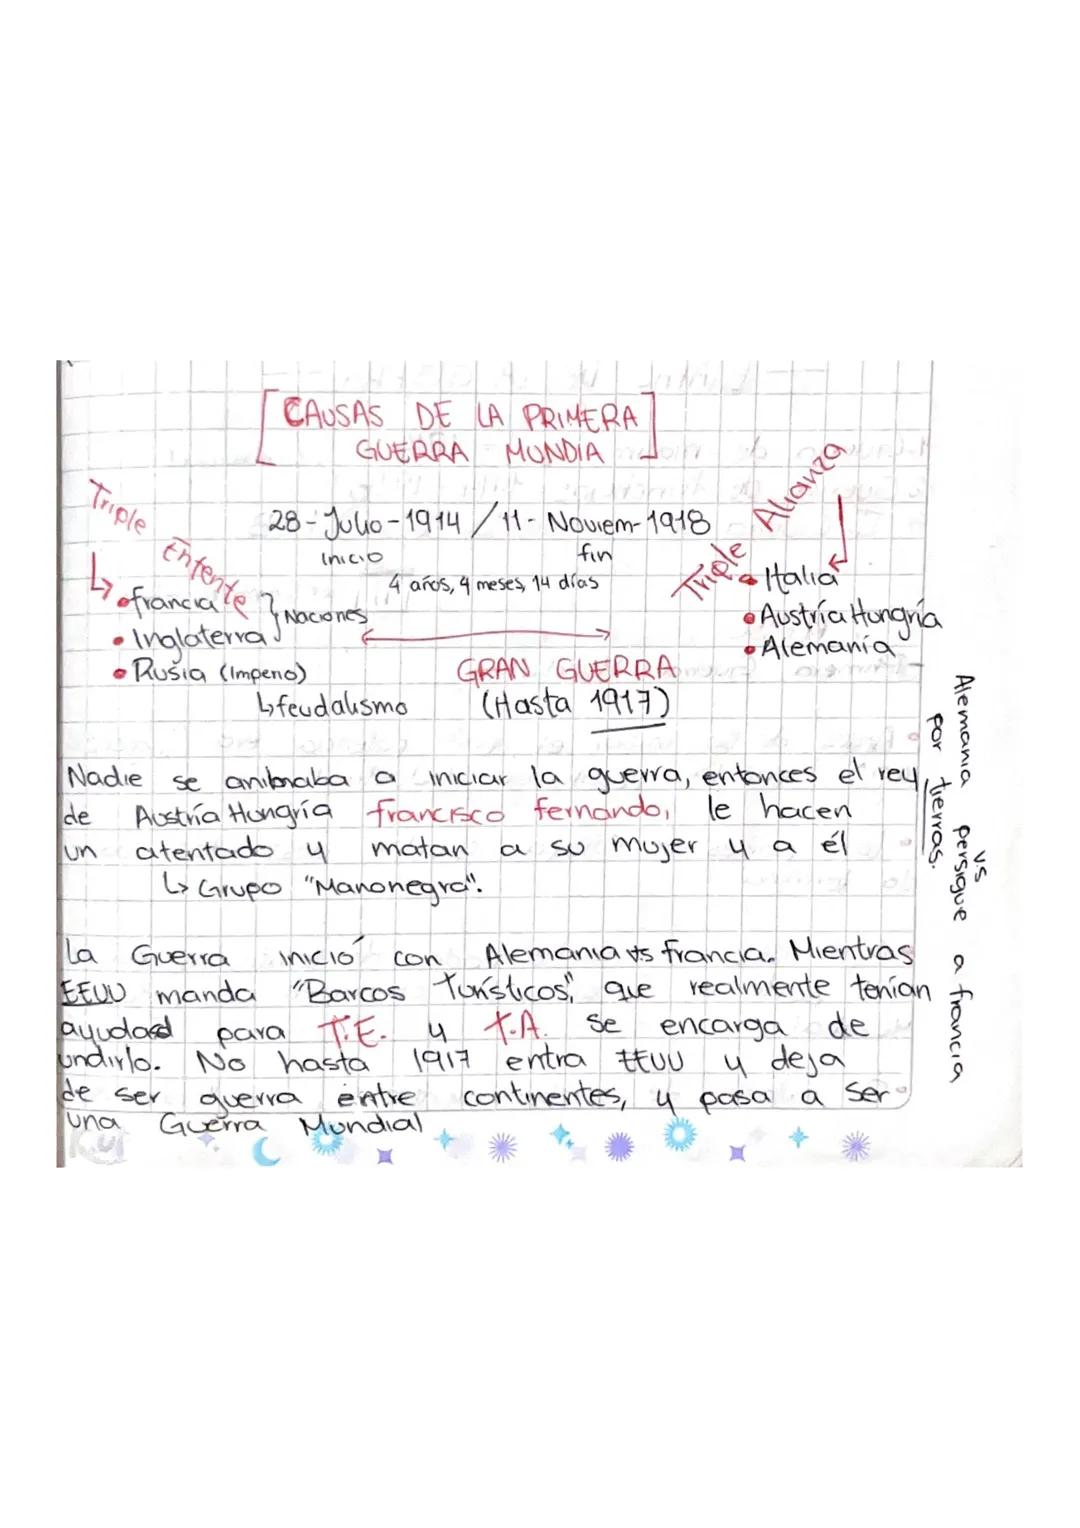 CAUSAS DE LA PRIMERA
GUERRA MUNDIA
Triple Entente
Triple Alianza
28-Julio-1914 / 11-Noviem-1918
inicio fin
4 años, 4 meses, 14 días
• francia
• Inglaterra } Naciones
• Rusia (Imperio)
↳ feudalismo
• Italia
• Austría Hungría
• Alemania
GRAN GUERRA
(Hasta 1917)
Nadie se a a iniciar la guerra, entonces el rey
de Austría Hungría francisco fernando, le hacen
un atentado y matan a su mujer y a él
↳ Grupo "Manonegra".
La Guerra inició con Alemania vs francia. Mientras
EEUU manda "Barcos Turísticos", que realmente tenían
para T.E. y T.A. se encarga de
undirlo. No hasta 1917 entra EEUU y deja
de ser guerra entre continentes, y pasa a ser
una Guerra Mundial
v.s
Alemania persigue a francia
por tierras.